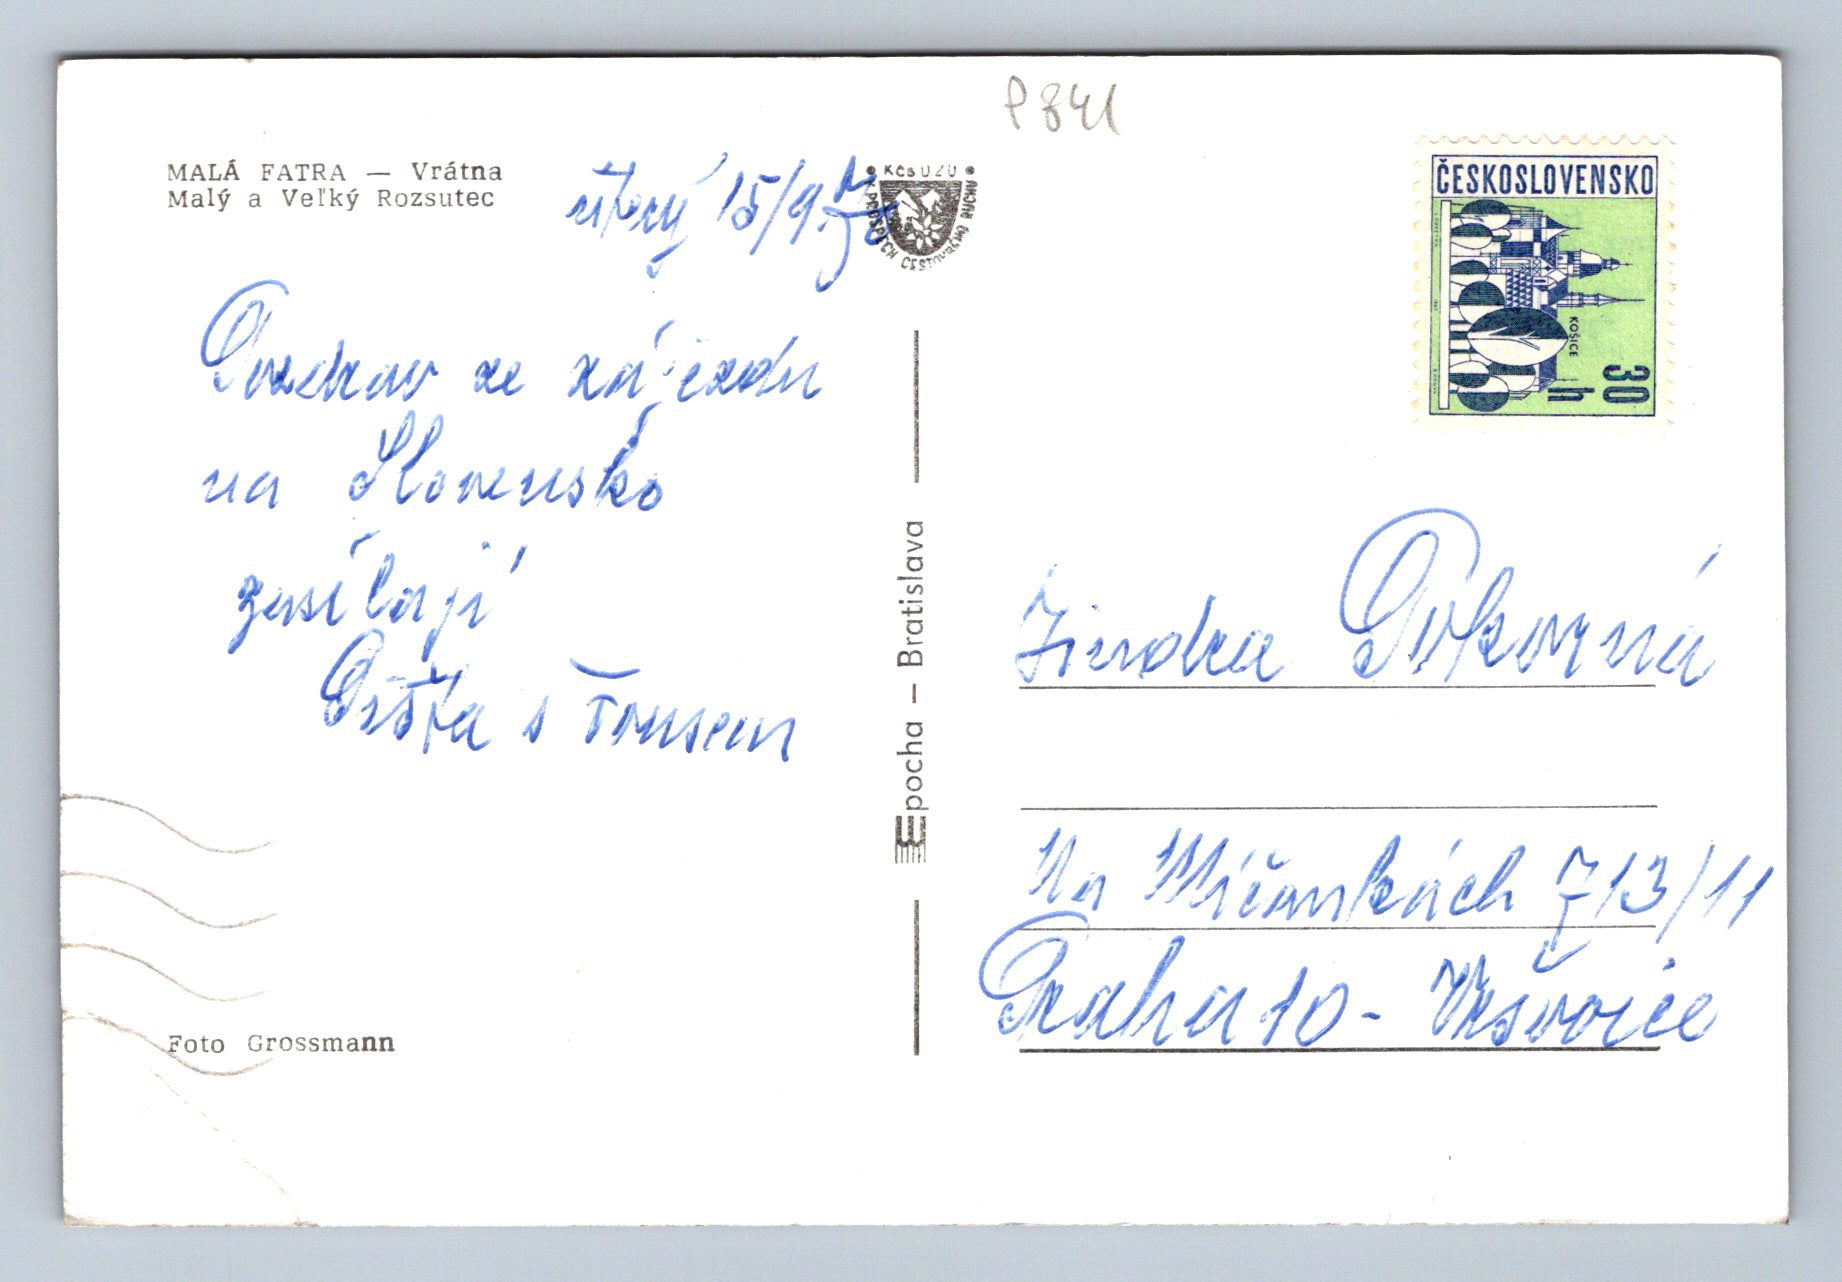 P 841
MALÁ FATRA — Vrátna
Malý a Veľký Rozsutec
úterý 15/9.70
Kčs 0,20
K PROSPECH CESTOVNÉHO RUCHU
ČESKOSLOVENSKO
KOŠICE
30 h
Pozdrav ze zájezdu
na Slovensko
zasílají
Epocha – Bratislava
Jindra Pokorná
Na Míčankách 713/11
Praha 10 - Vršovice
Foto Grossmann